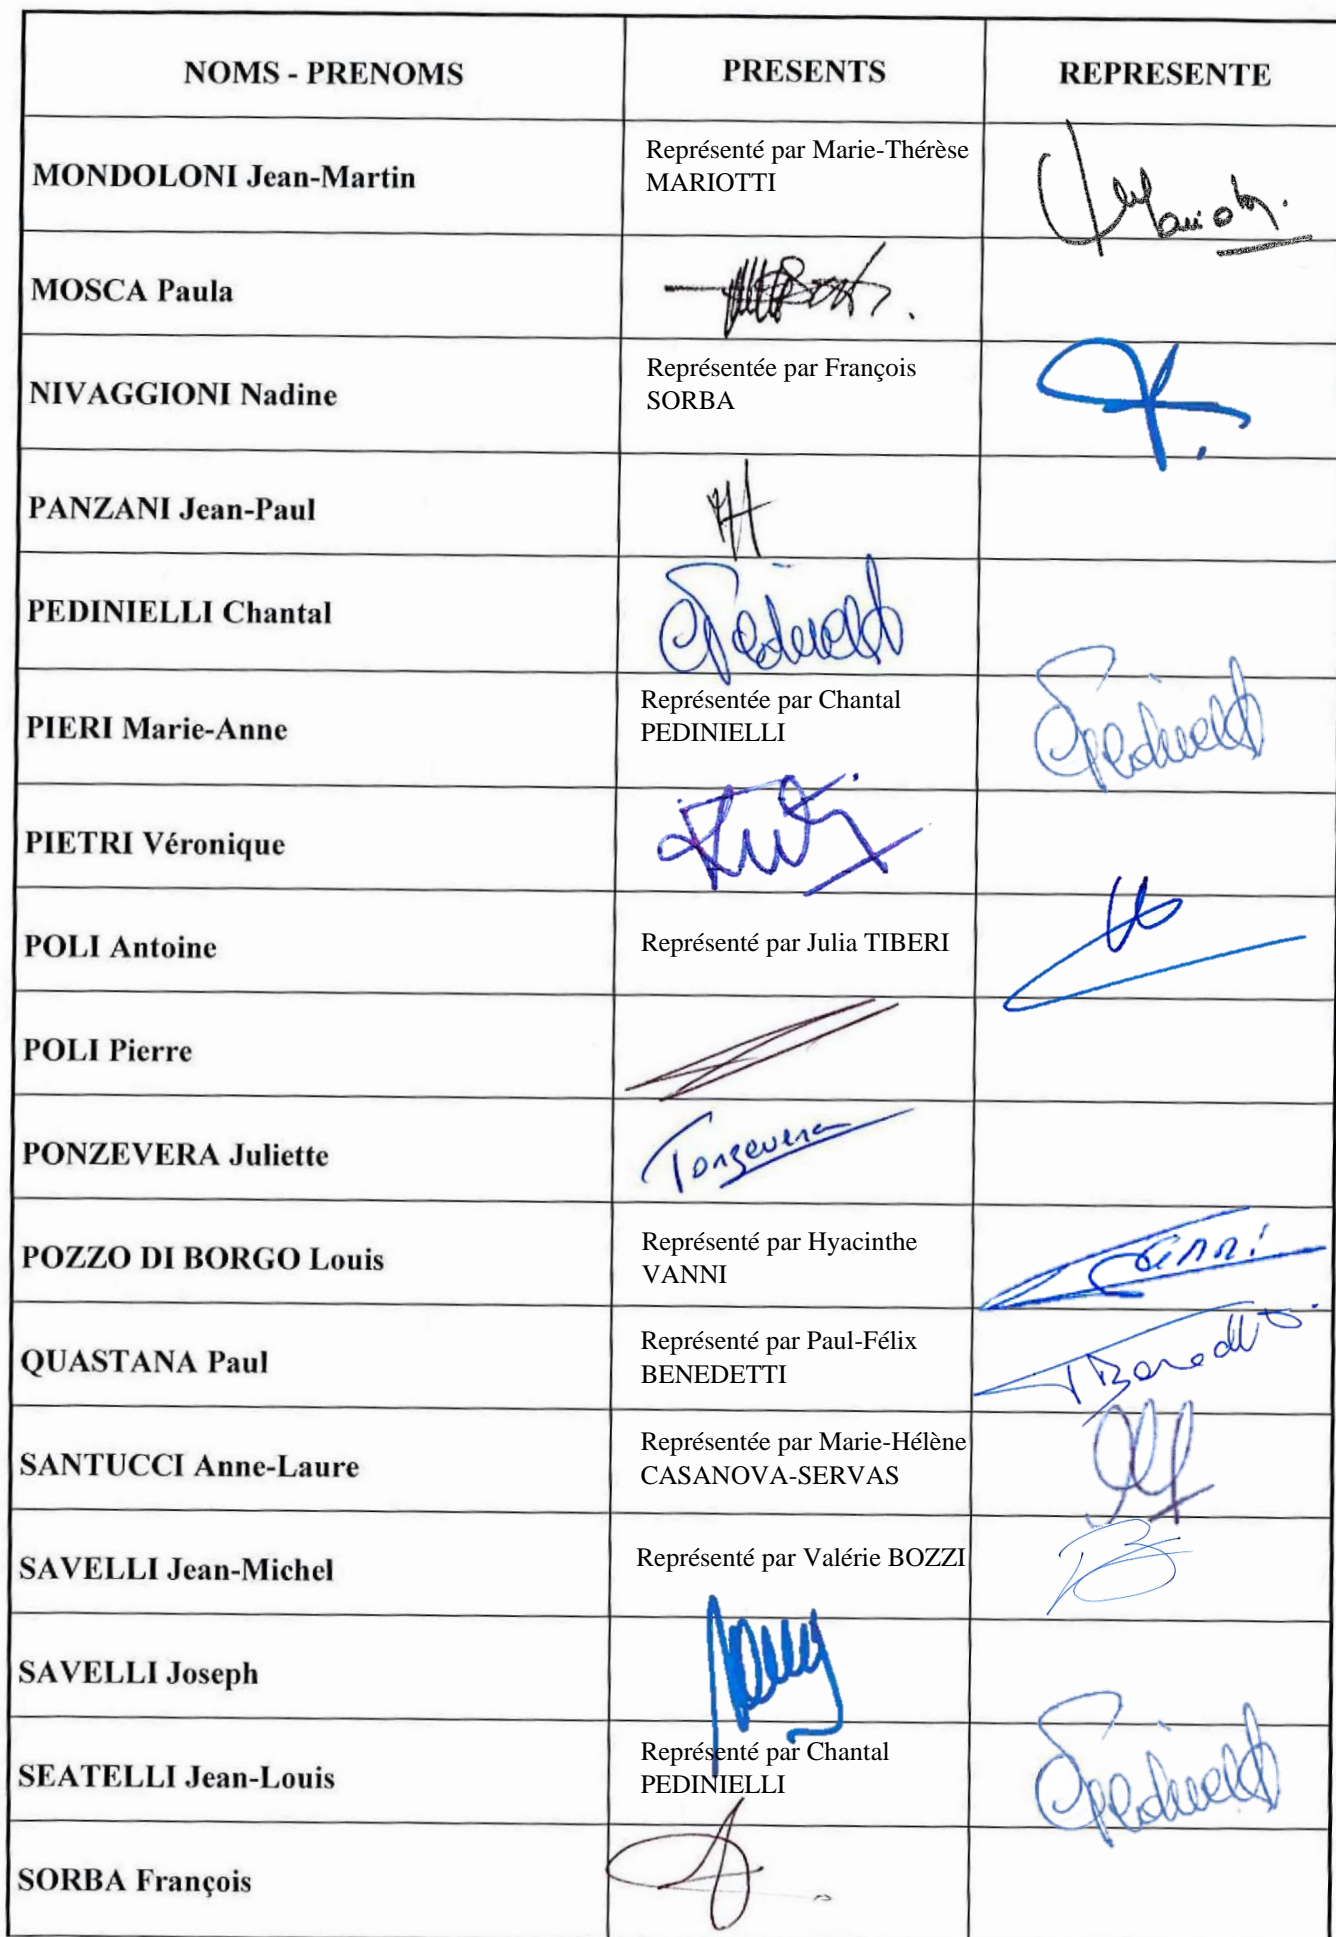 NOMS - PRENOMS PRESENTS REPRESENTE
MONDOLONI Jean-Martin
Représenté par Marie-Thérèse
MARIOTTI
MOSCA Paula
NIVAGGIONI Nadine
Représentée par François
SORBA
PANZANI Jean-Paul
PEDINIELLI Chantal
PIERI Marie-Anne
Représentée par Chantal
PEDINIELLI
PIETRI Véronique
POLI Antoine
Représenté par Julia TIBERI
POLI Pierre
PONZEVERA Juliette
Ponzevera
POZZO DI BORGO Louis
Représenté par Hyacinthe
VANNI
QUASTANA Paul
Représenté par Paul-Félix
BENEDETTI
SANTUCCI Anne-Laure
Représentée par Marie-Hélène
CASANOVA-SERVAS
SAVELLI Jean-Michel
Représenté par Valérie BOZZI
SAVELLI Joseph
SEATELLI Jean-Louis
Représenté par Chantal
PEDINIELLI
SORBA François